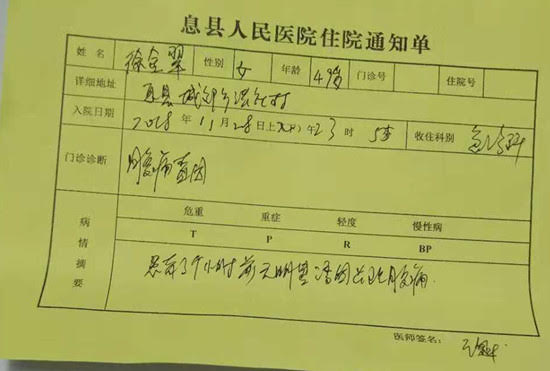 息县人民医院住院通知单
姓名 徐金翠 性别 女 年龄 49岁 门诊号 住院号
详细地址 息县城郊乡
入院日期 2018年11月28日上(下)午23时5分 收住科别
门诊诊断 腹痛查因
病情摘要
危重 重症 轻度 慢性病
T P R BP
患者 小时前无明显诱因出现腹痛
医师签名: